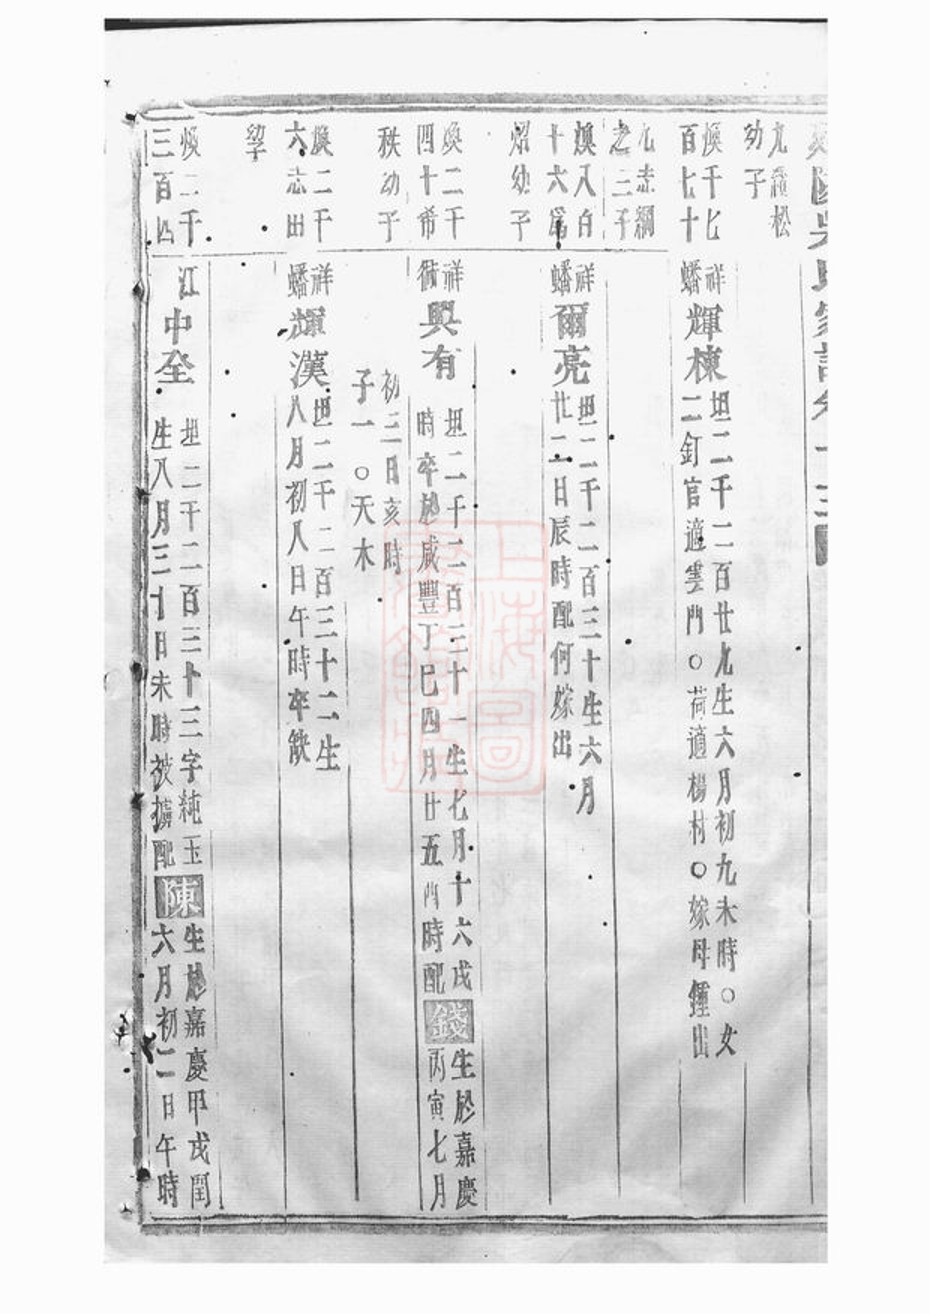 吳氏家譜卷十三
九霱松
幼子
煥千七
百七十
九志綱
之三子
祥
蟠
輝棟
坦二千二百廿九生六月初九未時○女
二釘官適雲門○荷適楊村○嫁母鍾出
煥八百
十六爲
熠幼子
祥
蟠
爾亮
坦二千二百三十生六月
廿二日辰時配何嫁出
煥二千
四十希
秩幼子
祥
銜
興有
坦二千二百三十一生七月十六戌
時卒於咸豐丁巳四月廿五酉時配
錢
生於嘉慶
丙寅七月
初三日亥時
子一○天木
煥二千
六志田
幼子
祥
蟠
輝漢
坦二千二百三十二生
八月初八日午時卒缺
煥二千
三百四
江
中全
坦二千二百三十三字純玉
生八月三十日未時被擄配
陳
生於嘉慶甲戌閏
六月初二日午時